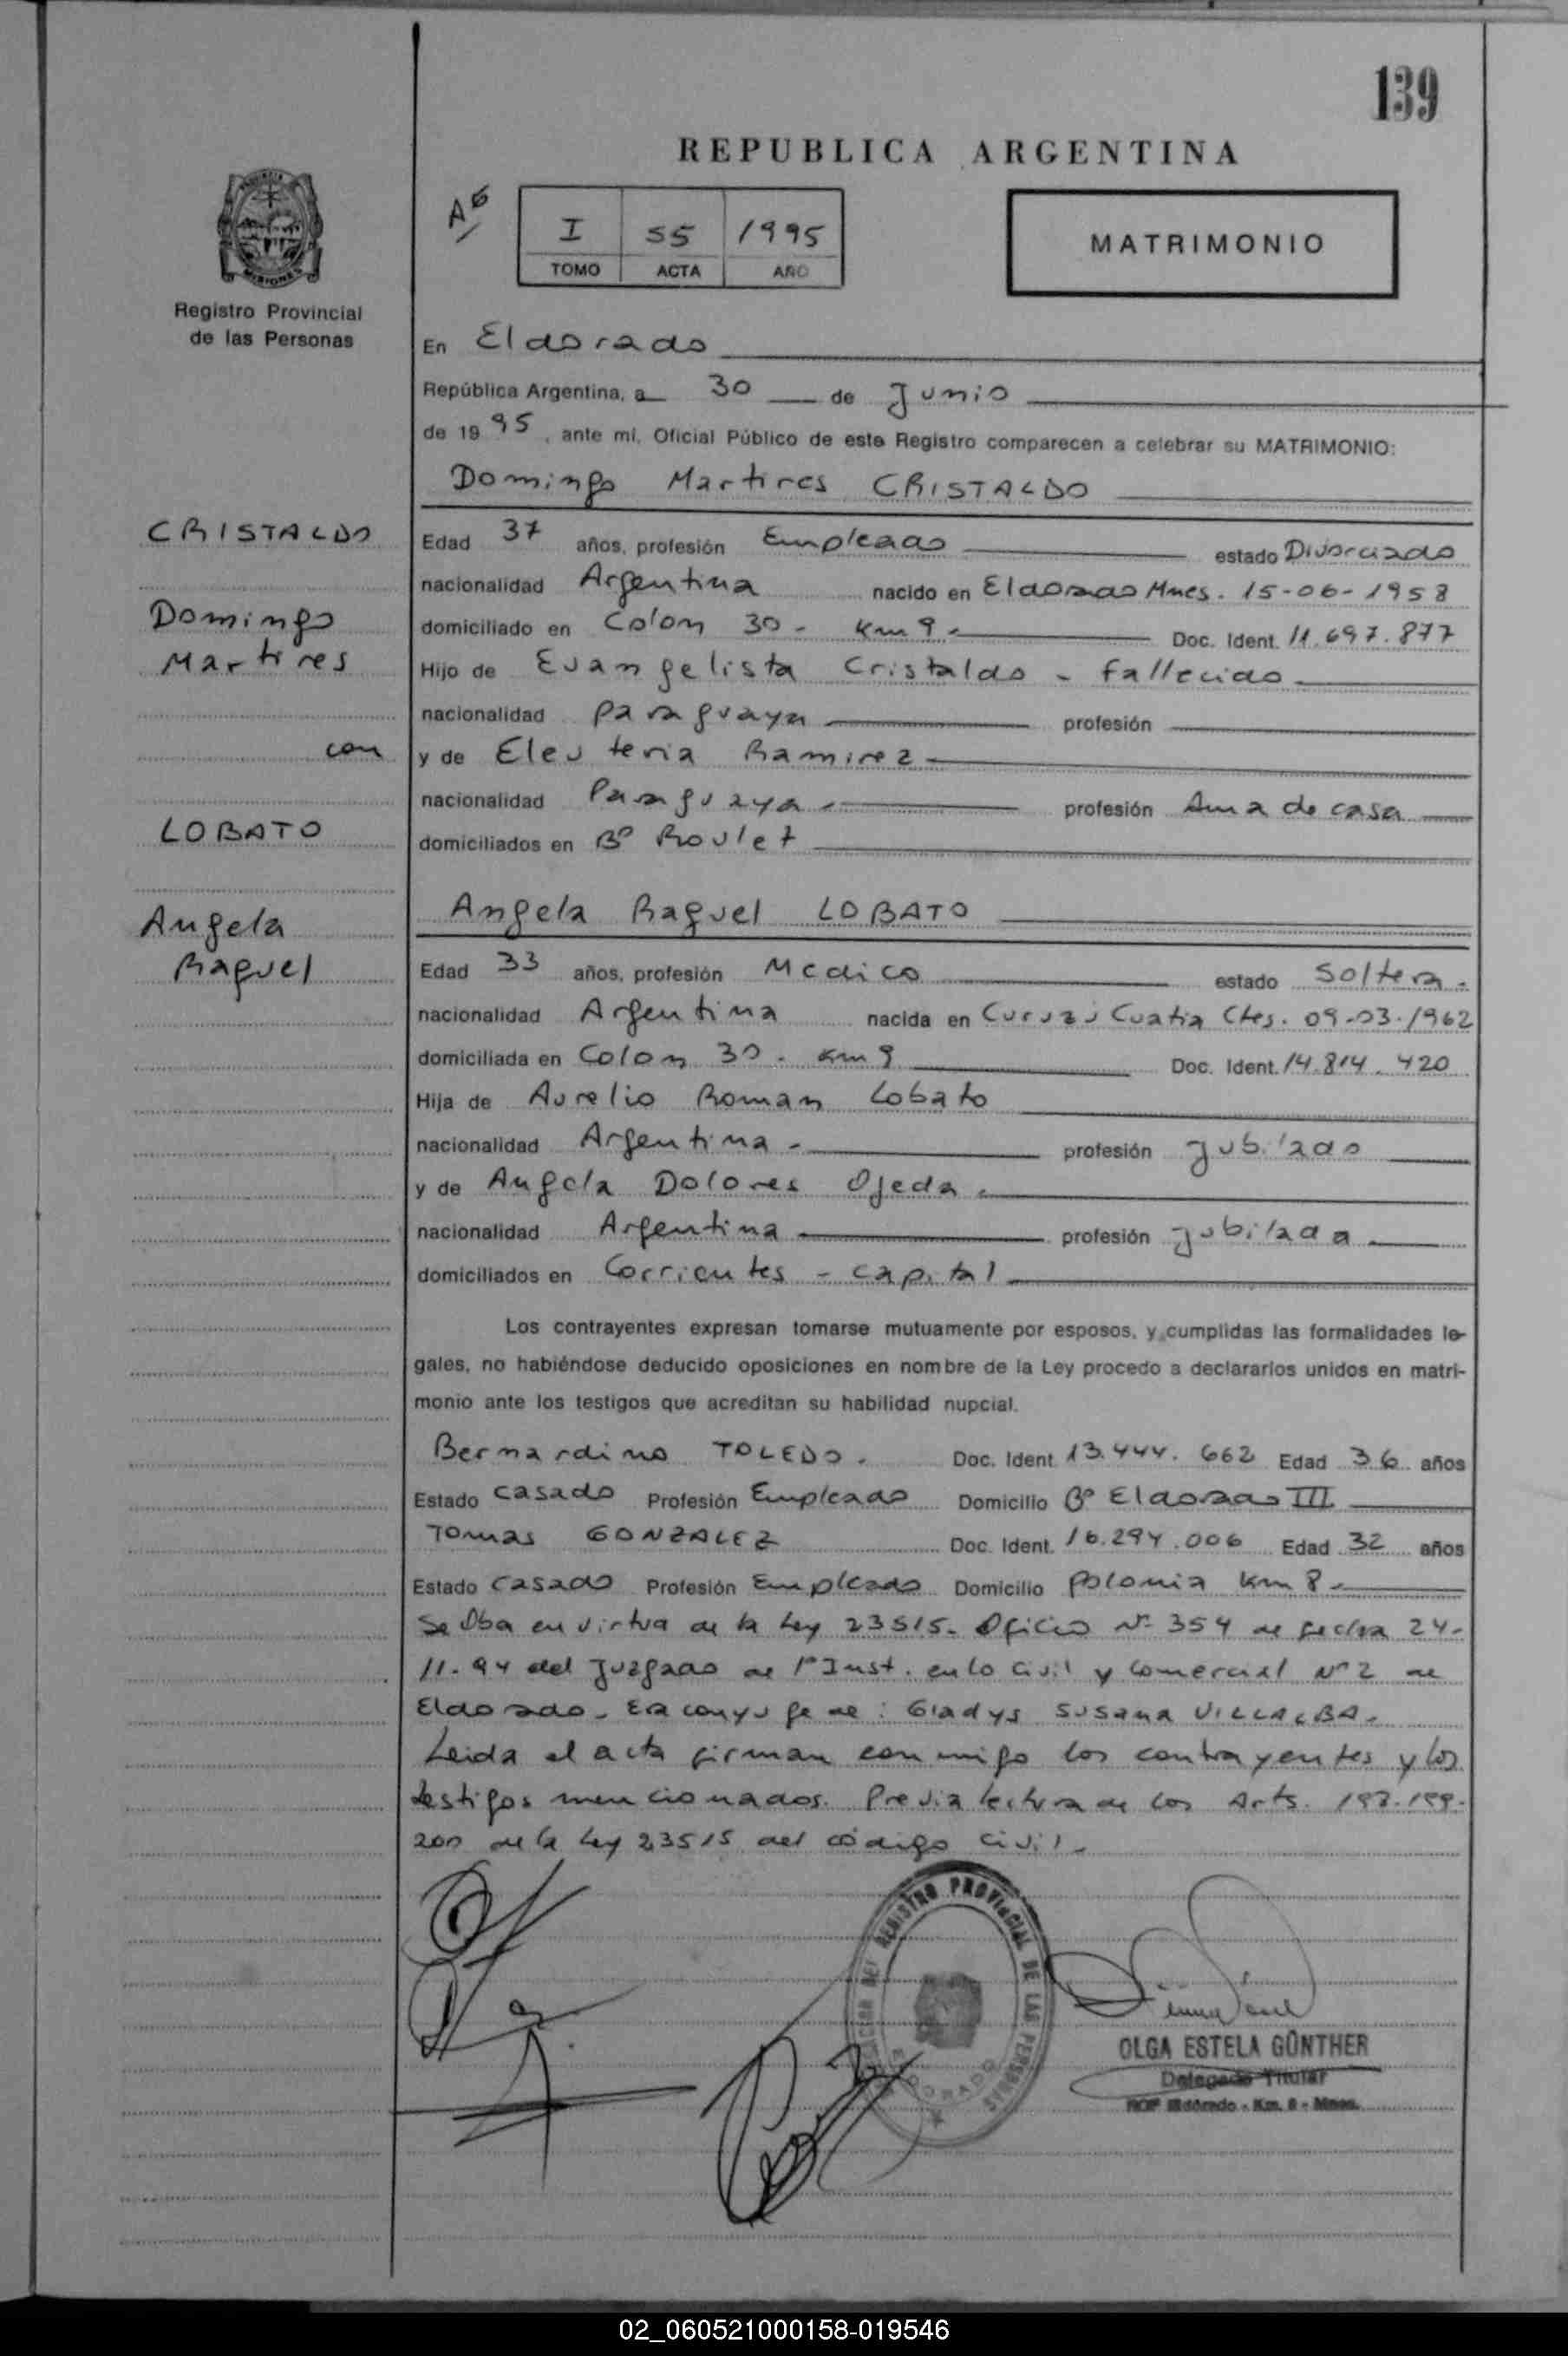 139
REPUBLICA ARGENTINA
I 55 1995
TOMO ACTA AÑO
MATRIMONIO
MISIONES
Registro Provincial
de las Personas
En Eldorado
República Argentina, a 30 de Junio
de 19 95, ante mí, Oficial Público de este Registro comparecen a celebrar su MATRIMONIO:
Domingo Martires CRISTALDO
CRISTALDO
Domingo
Martires
con
LOBATO
Angela
Raquel
Edad 37 años, profesión Empleado estado Divorciado
nacionalidad Argentina nacido en Eldorado Mnes. 15-06-1958
domiciliado en Colon 30 - Km 9 - Doc. Ident. 11.697.877
Hijo de Evangelista Cristaldo - fallecido
nacionalidad paraguaya profesión
y de Eleuteria Ramirez
nacionalidad Paraguaya profesión Ama de casa
domiciliados en Bº Roulet
Angela Raquel LOBATO
Edad 33 años, profesión Medico estado Soltera.
nacionalidad Argentina nacida en Curuzú Cuatia Ctes. 09-03-1962
domiciliada en Colon 30 - Km 9 Doc. Ident. 14.814.420
Hija de Aurelio Roman Lobato
nacionalidad Argentina - profesión jubilado
y de Angela Dolores Ojeda.
nacionalidad Argentina profesión jubilada
domiciliados en Corrientes - capital
Los contrayentes expresan tomarse mutuamente por esposos, y cumplidas las formalidades le-
gales, no habiéndose deducido oposiciones en nombre de la Ley procedo a declararlos unidos en matri-
monio ante los testigos que acreditan su habilidad nupcial.
Bernardino TOLEDO. Doc. Ident 13.444.662 Edad 36 años
Estado casado Profesión Empleado Domicilio Bº Eldorado III
Tomas GONZALEZ Doc. Ident. 16.294.006 Edad 32 años
Estado casado Profesión Empleado Domicilio Polonia Km 8-
en virtud de la Ley 23515. Oficio Nº 354 de fecha 24-
11-94 del Juzgado de 1º Inst. en lo Civil y Comercial Nº 2 de
Eldorado. Era conyuge de: Gladys Susana VILLALBA.
Leida el acta firman conmigo los contrayentes y los
testigos mencionados. Previa lectura de los Arts. 198.199.
200 de la Ley 23515 del código civil.
REGISTRO PROVINCIAL DE LAS PERSONAS
ELDORADO
OLGA ESTELA GÜNTHER
Delegado Titular
Eldorado - Km. 8 - Mnes.
02_060521000158-019546